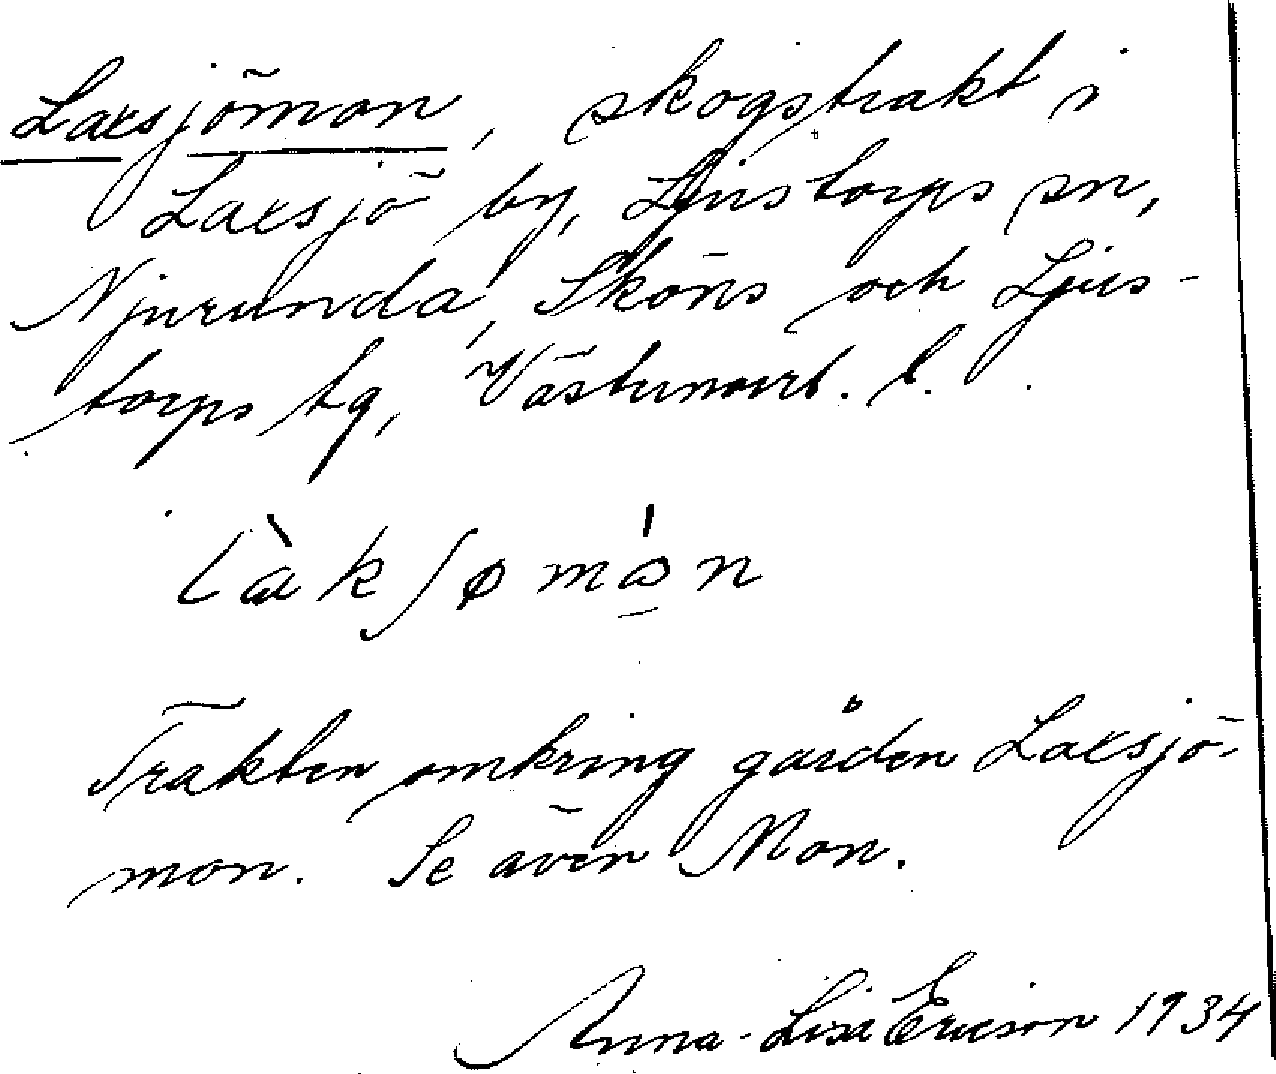 Laxsjömon, skogstrakt i
Laxsjö by, Ljustorps sn,
Njurunda, Sköns och Ljus-
torps tg, Västernorrl. l.
làksjømón
Trakten omkring gården Laxsjö-
mon. Se även Mon.
Anna-Lisa Ericson 1934